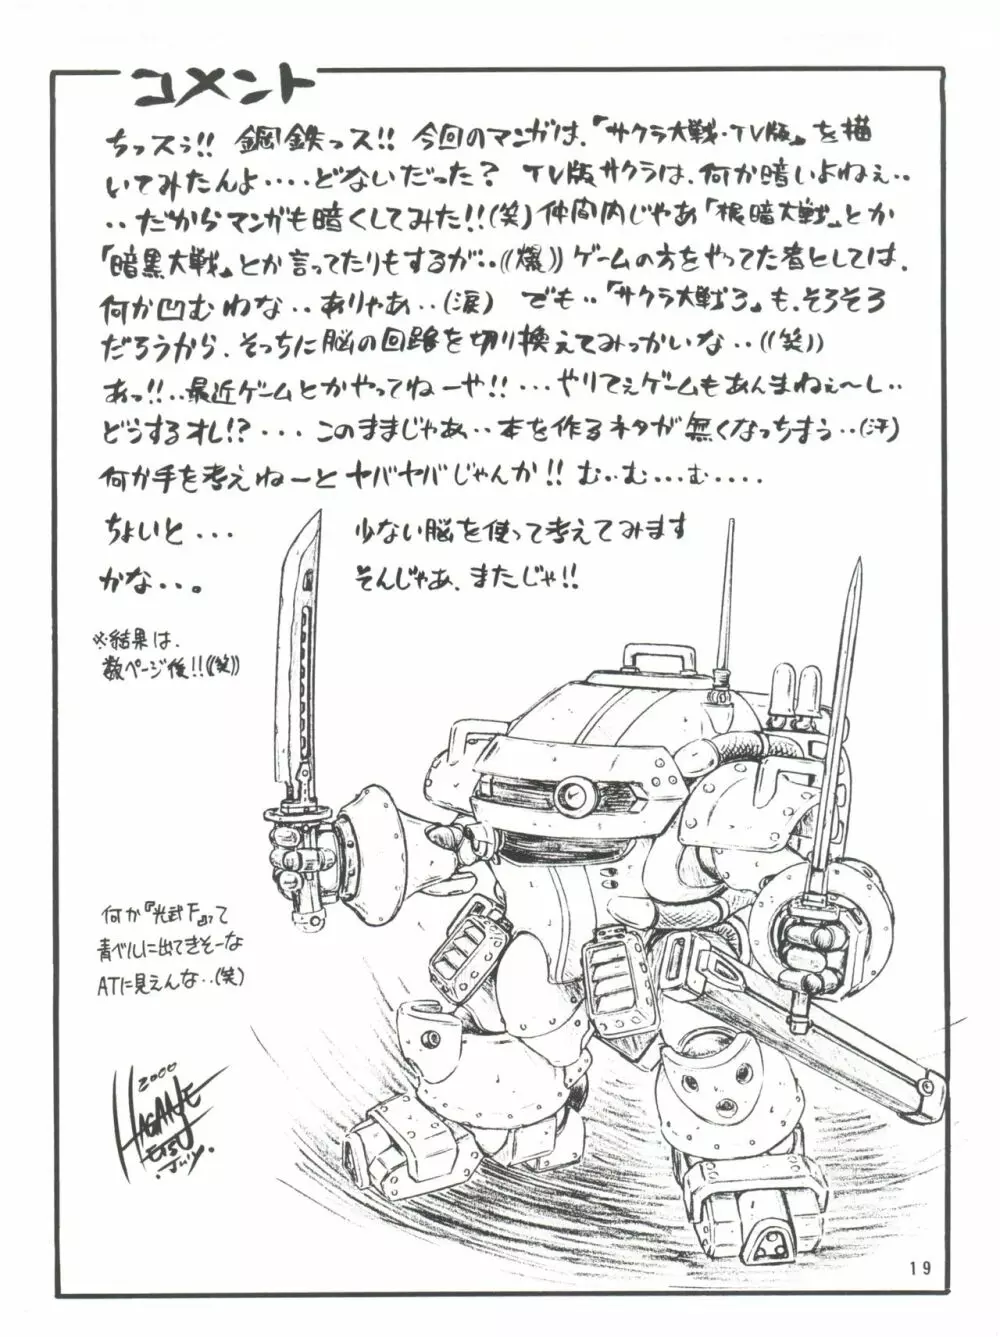 コメント
ちっスぅ!! 鋼鉄っス!! 今回のマンガは、「サクラ大戦・TV版」を描
いてみたんよ‥‥どないだった? TV版サクラは、何か暗いよねぇ‥
‥だからマンガも暗くしてみた!!(笑)仲間内じゃあ「根暗大戦」とか
「暗黒大戦」とか言ってたりもするが‥((爆))ゲームの方をやってた者としては、
何か凹むわな‥ありゃあ‥(涙) でも‥「サクラ大戦3」も、そろそろ
だろうから、そっちに脳の回路を切り換えてみっかいな‥((笑))
あっ!!‥最近ゲームとかやってねーや!!‥・やりてぇゲームもあんまねぇ～し‥
どうするオレ!?‥・このままじゃあ‥本を作るネタが無くなっちまう‥(汗)
何か手を考えねーとヤバヤバじゃんか!! む‥む‥・む‥‥
ちょいと‥・ 少ない脳を使って考えてみます
かな‥。 そんじゃあ、またじゃ!!
※結果は、
数ページ後!!((笑))
何か『光武F』って
青ベルに出てきそーな
ATに見えんな‥(笑)
2000
HAGANE
ETSU
July.
19